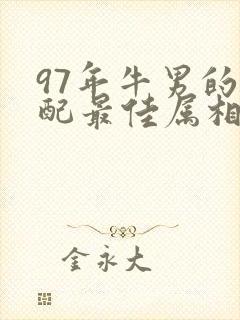 97年牛男的
配最佳属相
金永大